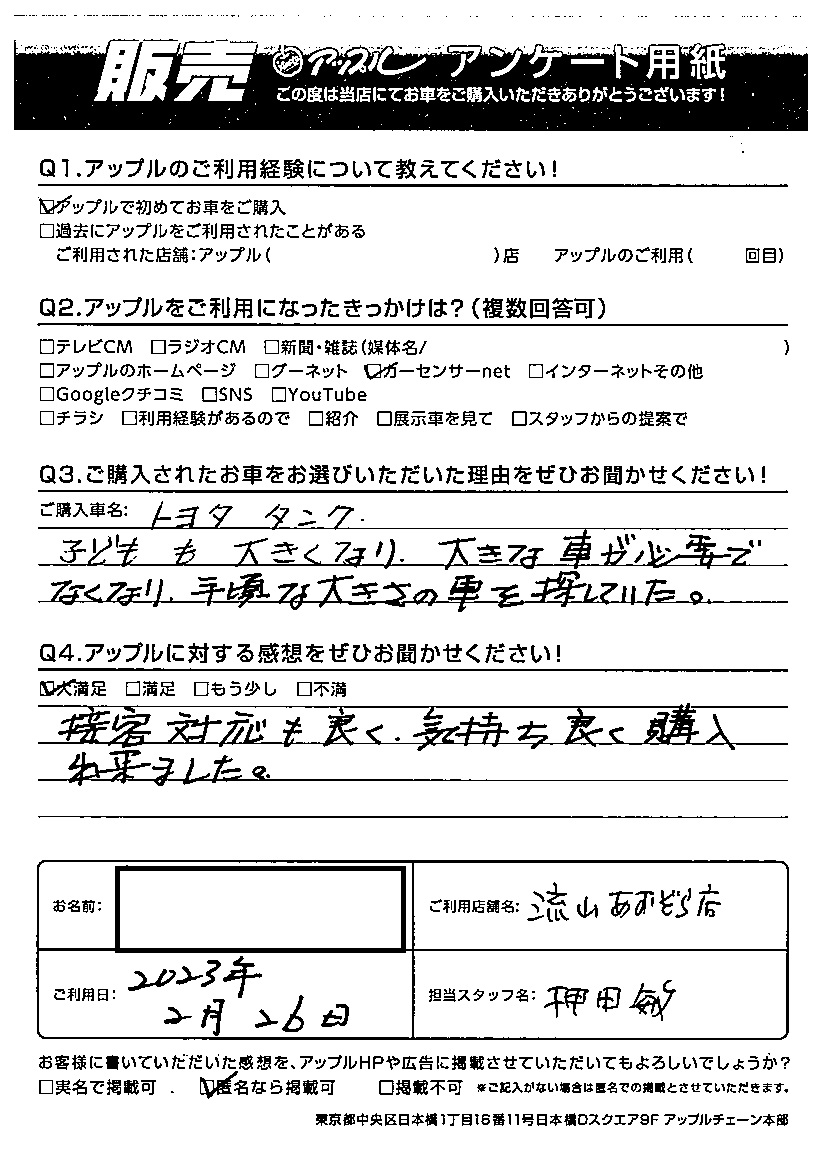 販売 アップル アンケート用紙
この度は当店にてお車をご購入いただきありがとうございます!
Q1.アップルのご利用経験について教えてください!
☑アップルで初めてお車をご購入
□過去にアップルをご利用されたことがある
ご利用された店舗:アップル( )店 アップルのご利用( 回目)
Q2.アップルをご利用になったきっかけは?(複数回答可)
□テレビCM □ラジオCM □新聞・雑誌(媒体名/ )
□アップルのホームページ □グーネット ☑カーセンサーnet □インターネットその他
□Googleクチコミ □SNS □YouTube
□チラシ □利用経験があるので □紹介 □展示車を見て □スタッフからの提案で
Q3.ご購入されたお車をお選びいただいた理由をぜひお聞かせください!
ご購入車名: トヨタ タンク.
子ども も 大きくなり、大きな車が必要で
なくなり、手頃な大きさの車を探していた。
Q4.アップルに対する感想をぜひお聞かせください!
☑大満足 □満足 □もう少し □不満
接客対応も良く、気持ち良く購入
出来ました。
お名前: ご利用店舗名: 流山あおぞら店
ご利用日: 2023年
2月26日
担当スタッフ名: 押田 敏
お客様に書いていただいた感想を、アップルHPや広告に掲載させていただいてもよろしいでしょうか?
□実名で掲載可 . ☑匿名なら掲載可 □掲載不可 ※ご記入がない場合は匿名での掲載とさせていただきます。
東京都中央区日本橋1丁目16番11号日本橋Dスクエア9F アップルチェーン本部